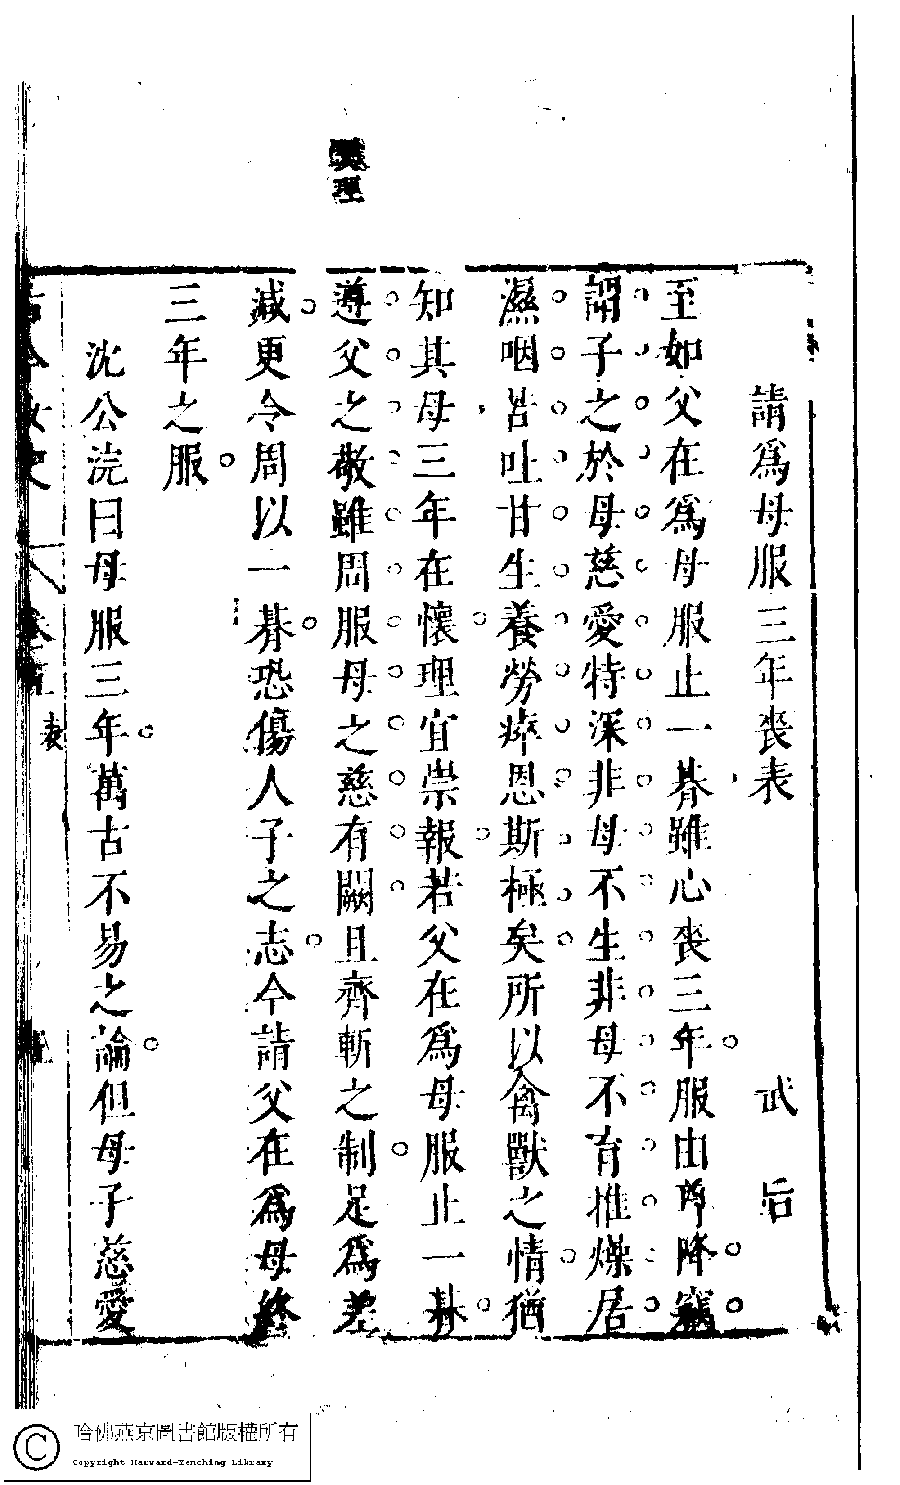 請爲母服三年喪表 武后
至如父在爲母服止一朞雖心喪三年服由尊降竊
謂子之於母慈愛特深非母不生非母不育推燥居
濕咽苦吐甘生養勞瘁恩斯極矣所以禽獸之情猶
知其母三年在懷理宜崇報若父在爲母服止一朞
遵父之敬雖周服母之慈有闕且齊斬之制足爲差
減更令周以一朞恐傷人子之志今請父在爲母終
三年之服
沈公浣曰母服三年萬古不易之論但母子慈愛
理
古今女史 卷五 表
哈佛燕京圖書館版權所有
Copyright Harvard-Yenching Library